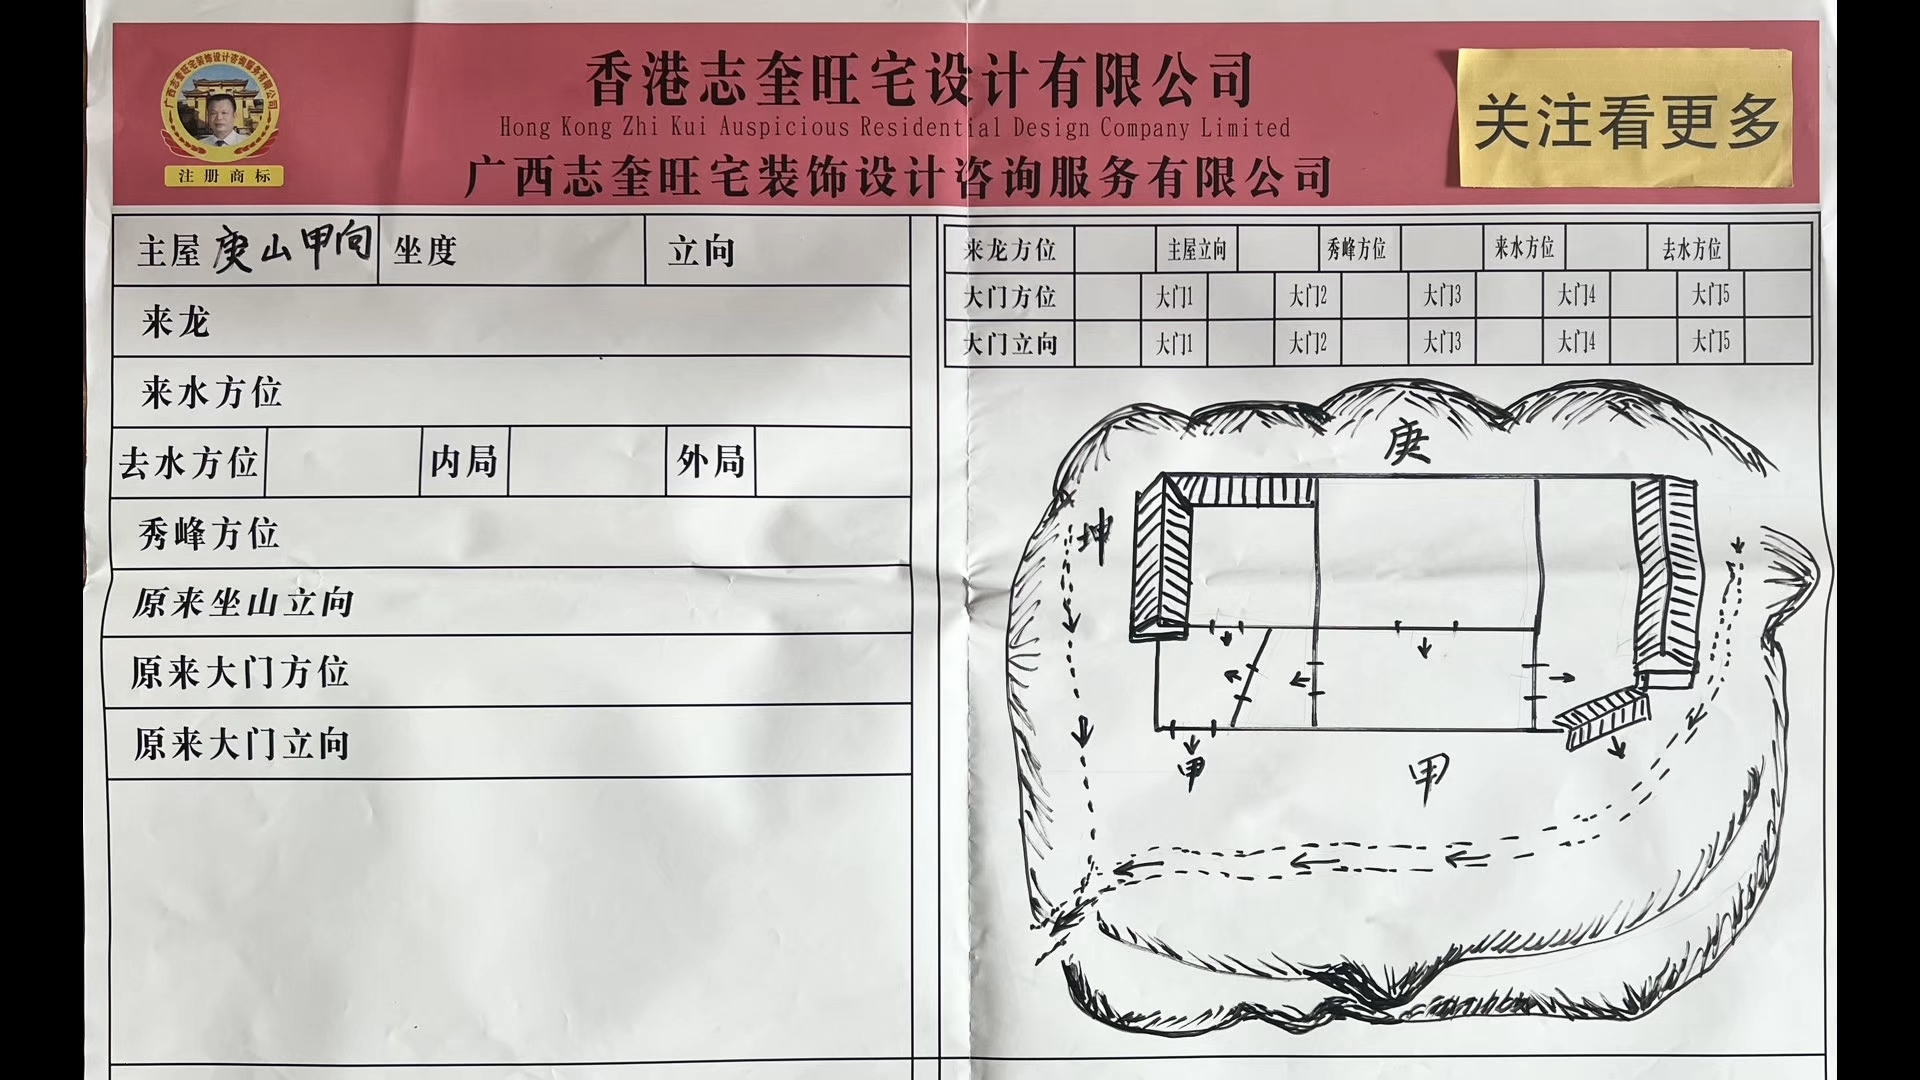 广西志奎旺宅装饰设计咨询服务有限公司
注册商标
香港志奎旺宅设计有限公司
Hong Kong Zhi Kui Auspicious Residential Design Company Limited
广西志奎旺宅装饰设计咨询服务有限公司
关注看更多
主屋 庚山甲向 坐度 立向
来龙
来水方位
去水方位 内局 外局
秀峰方位
原来坐山立向
原来大门方位
原来大门立向
来龙方位 主屋立向 秀峰方位 来水方位 去水方位
大门方位 大门1 大门2 大门3 大门4 大门5
大门立向 大门1 大门2 大门3 大门4 大门5
庚
坤
甲 甲